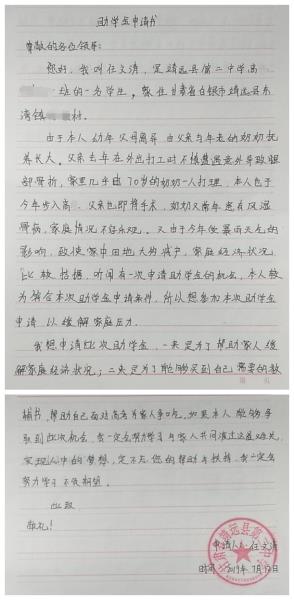 助学金申请书
尊敬的各位领导：
您好，我叫任文清，是靖远县第二中学高
班的一名学生，家住甘肃省白银市靖远县东
湾镇 村。
由于本人幼年父母离异，由父亲与年老的奶奶抚
养长大。父亲去年在外出打工时不慎遭遇意外导致腿
部骨折，家里几乎由70岁的奶奶一人打理，本人也于
今年步入高 ，父亲也即将手术，奶奶又常年患有风湿
骨病，家庭情况不好乐观。又由于今年受暴雨天气的
影响，致使家中田地大为减产，家庭经济状况
比较拮据，听闻有一次申请助学金的机会，本人较
为符合本次助学金申请条件，所以想参加本次助学金
申请，以缓解家庭压力。
我想申请此次助学金，一来是为了帮助家人缓
解家庭经济状况；二来是为了能够买到自己需要的教
辅书，帮助自己面对高考为家人争口气，如果本人能够争
取到此次机会，我一定会努力学习与家人共同渡过这道难关，
实现心中的梦想，定不忘您的帮助与扶持，我一定会
努力学习不负期望。
此致
敬礼！
申请人：任文清
时间：2019年7月12日